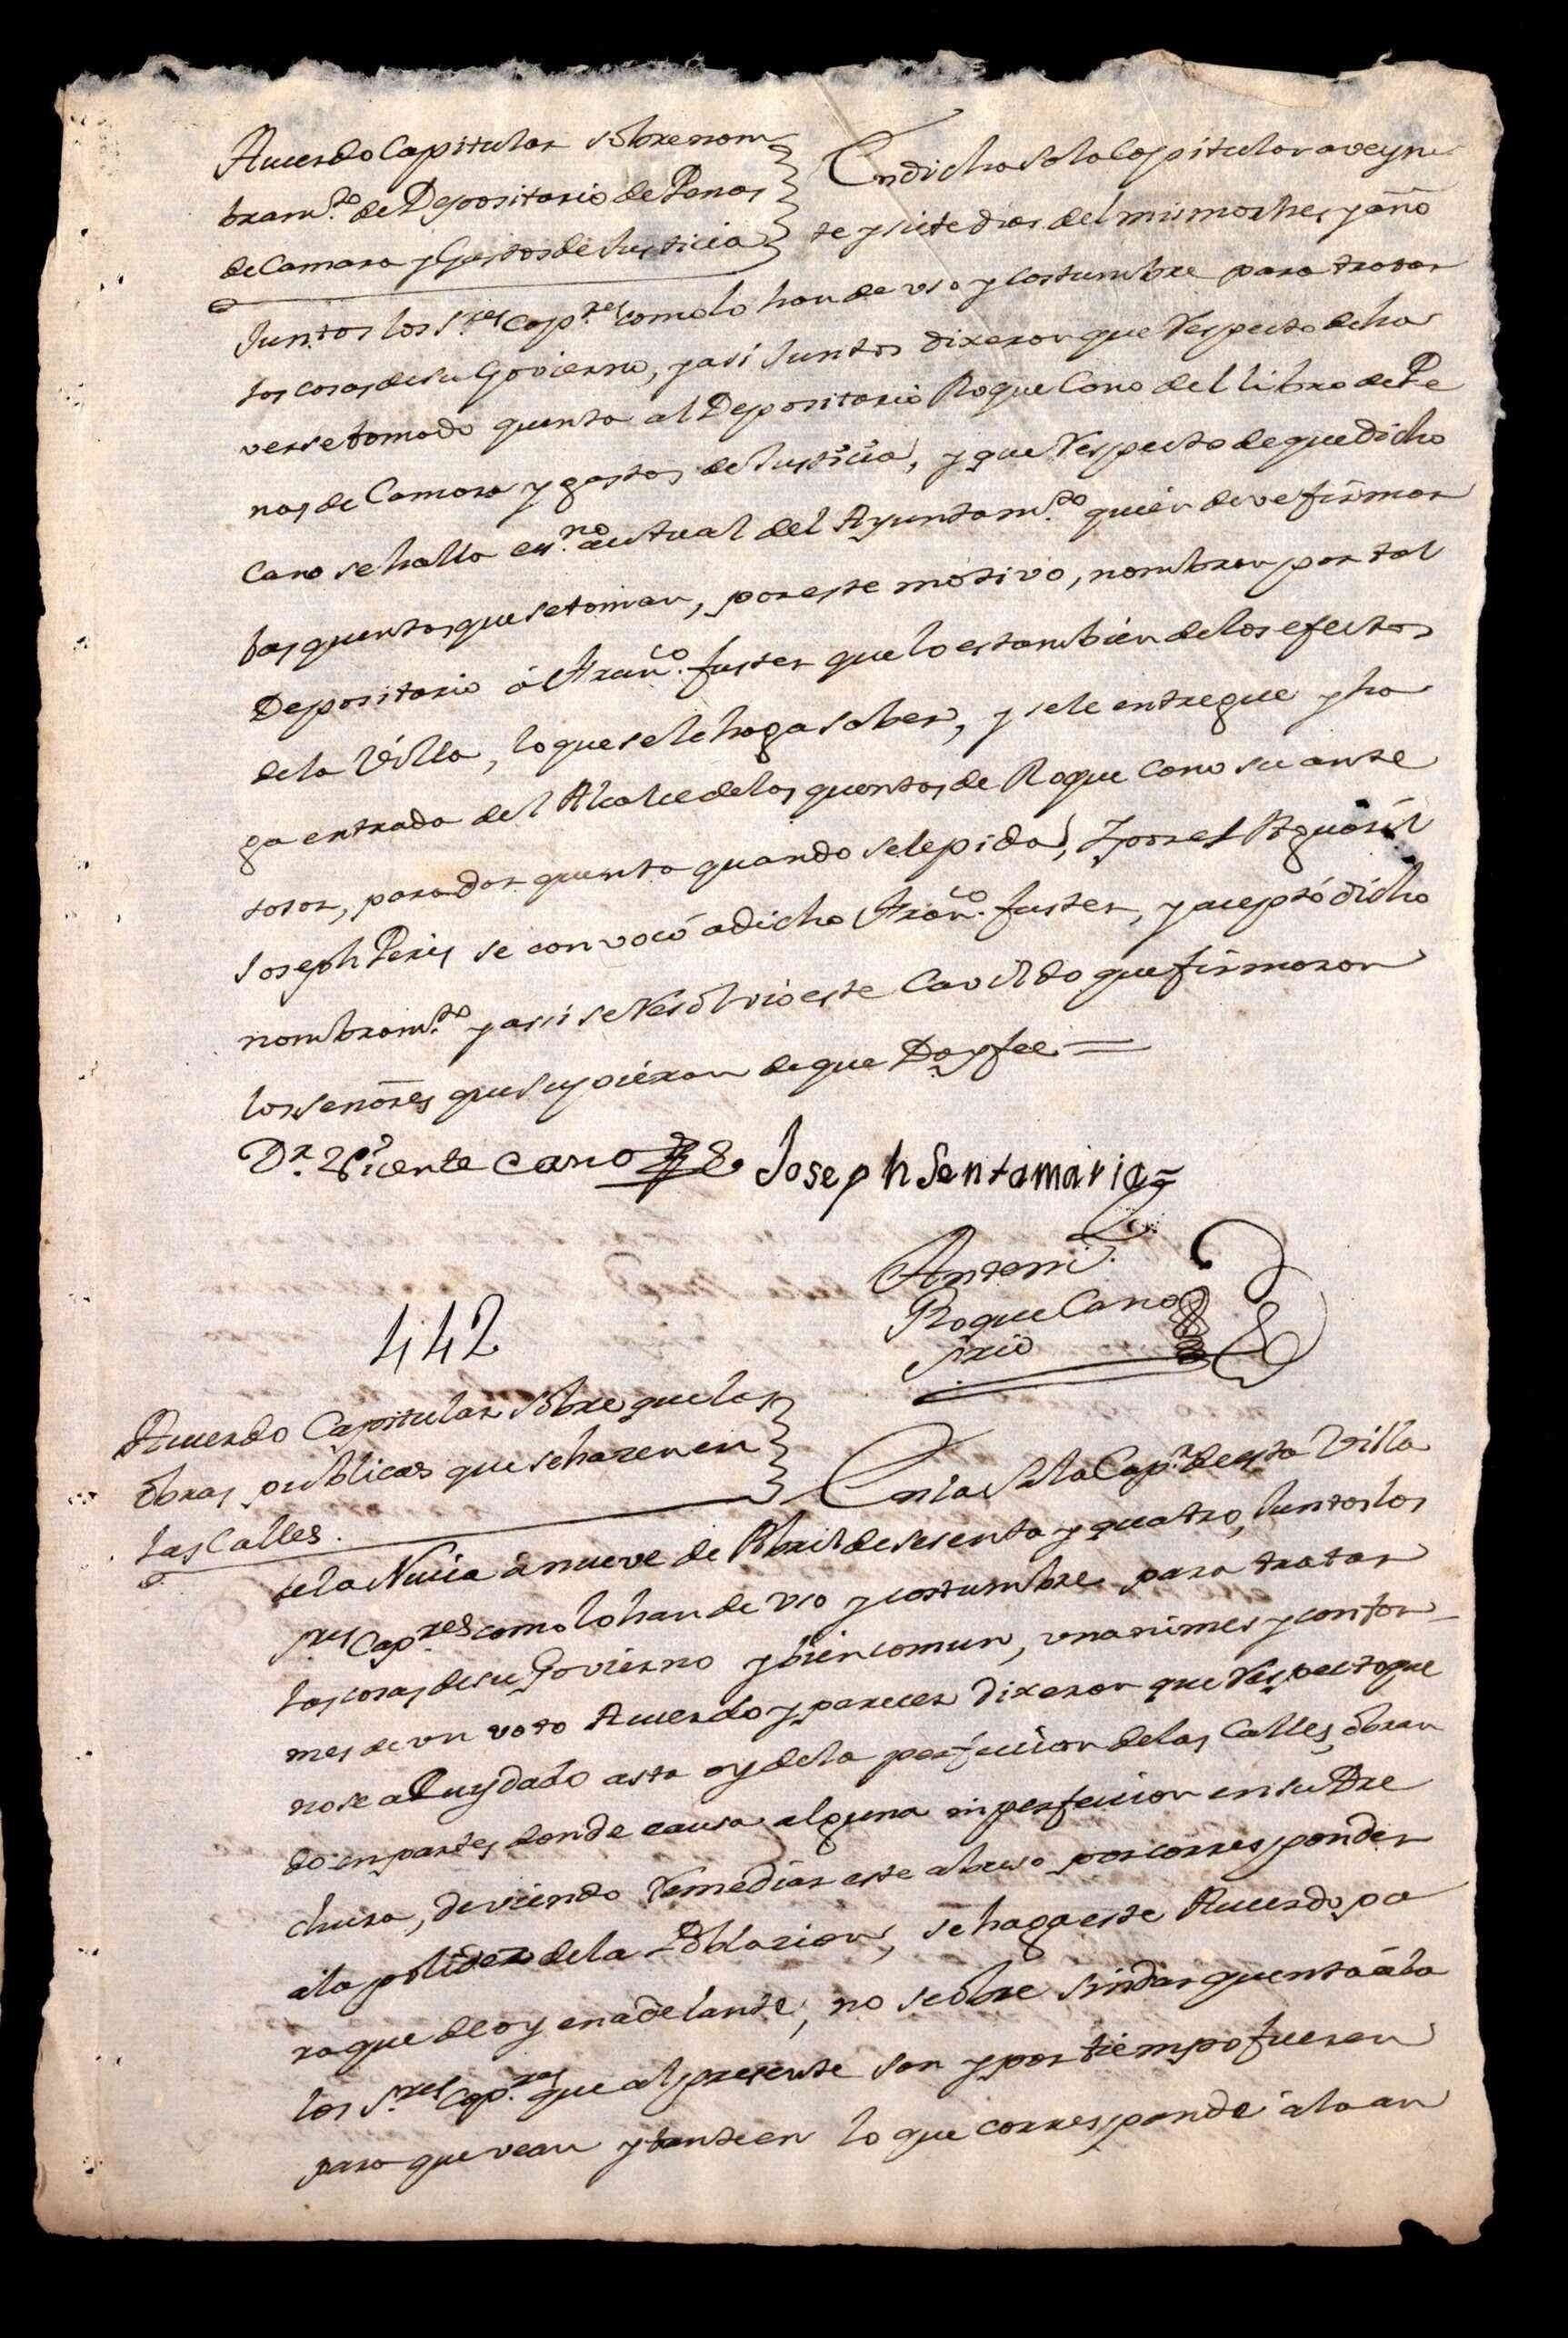 Acuerdo Capitular sobre nom
bram.to de Depositario de Penas
de Camara y Gastos de Justicia
En dicha Sala Capitular a veyn
te y siete dias del mismo Mes y año
Juntos los S.res Cap.res como lo han de uso y costumbre para tratar
las cosas de su Govierno, y asi Juntos dixeron que Respecto de ha
verse tomado quenta al Depositario Roque Cano del libro de Pe
nas de Camara y gastos de Justicia, y que Respecto de que dicho
Cano se halla es.no actual del Ayuntam.to quien deve firmar
las quentas que se toman, por este motivo, nombran por tal
Depositario á Fran.co fuster que lo es tambien de los efectos
de la Villa, lo que se le haga saber, y se le entregue y ha
ga entrada del Alcalce de las quentas de Roque Cano su ante
sesor, para dar quenta quando se le pida, Y por el Alguasil
Joseph Peris se convocó a dicho Fran.co fuster, y aceptó dicho
nombram.to y assi se Resolvio este Cavildo que firmaron
los señores que supieron de que Doy fee =
D.r Vicente Cano Joseph Sentamaria
Antemi
Roque Cano
srio
442
Acuerdo Capitular sobre que las
obras publicas que se hazen en
las Calles.
En la Sala Cap.r de esta Villa
de la Nucia á nueve de Abril de sesenta y quatro, Juntos los
S.res Cap.res como lo han de uso y costumbre para tratar
las cosas de su Govierno y bien comun, unanimes y confor
mes de un voto Acuerdo y parecer Dixeron que Respecto que
no se a Cuydado asta oy de la perfeccion de las Calles, obran
do en partes donde causa alguna inperfeccion en su Dre
chura, deviendo Remediar este abuso por corresponder
a la polidez de la Poblazion, se haga este Acuerdo pa
ra que de oy en adelante, no se obre sin dar quenta á
los S.res Cap.res que al presente son y por tiempo fueren
para que vean y tanteen lo que corresponde a la an